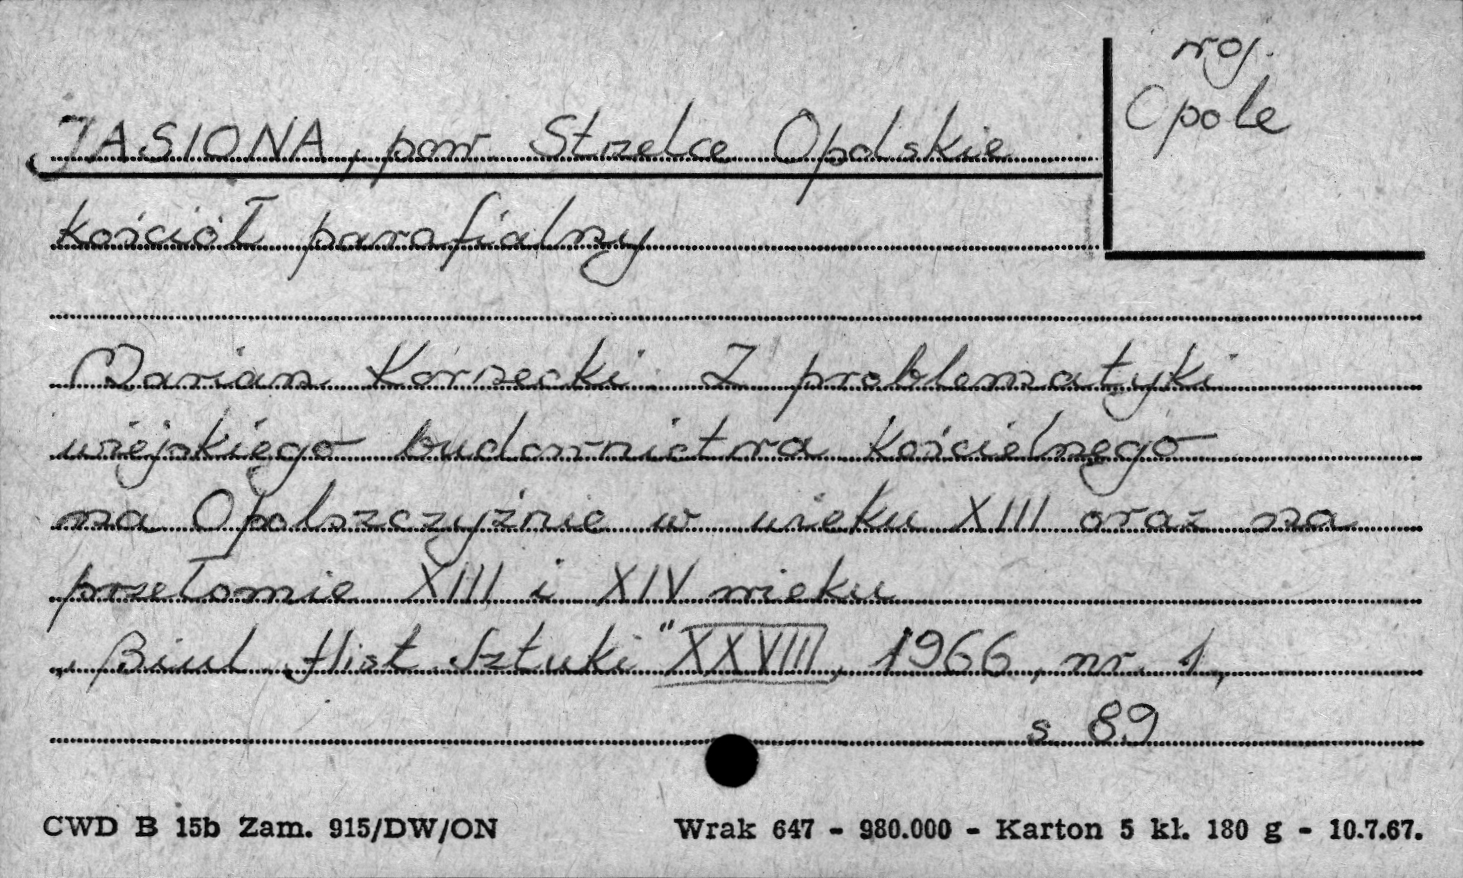 woj.
Opole
JASIONA, pow. Strzelce Opolskie
kościół parafialny
Marian Korzecki. Z problematyki
wiejskiego budownictwa kościelnego
na Opolszczyźnie w wieku XIII oraz na
przełomie XIII i XIV wieku
„Biul. Hist. Sztuki" XXVIII, 1966, nr. 1,
s 89
CWD B 15b Zam. 915/DW/ON
Wrak 647 - 980.000 - Karton 5 kl. 180 g - 10.7.67.